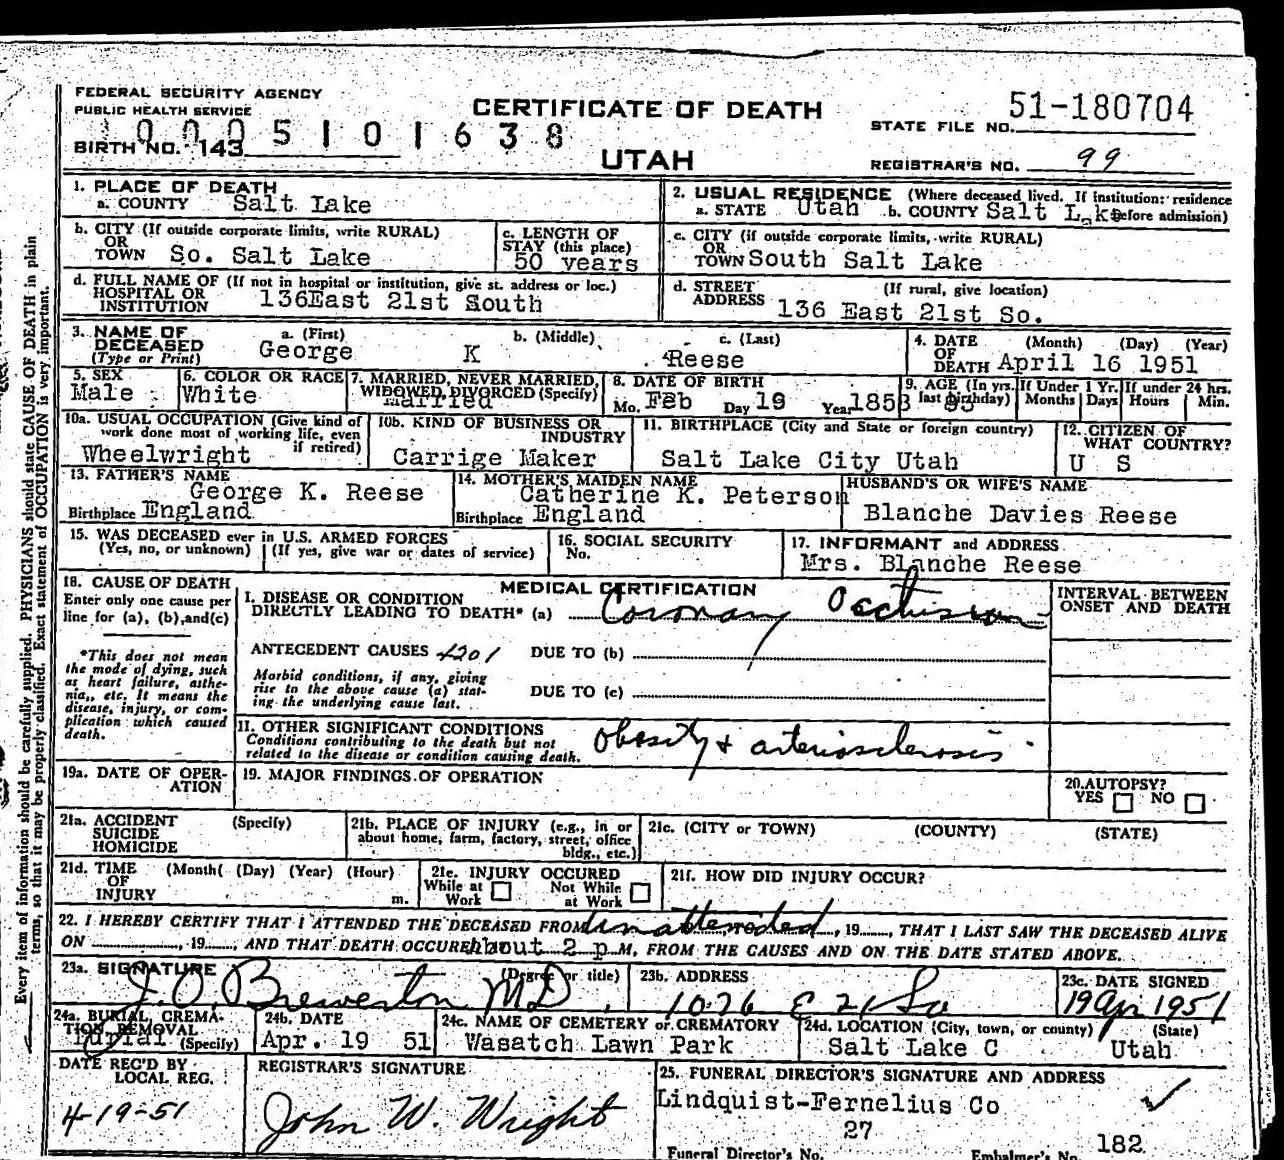 FEDERAL SECURITY AGENCY
PUBLIC HEALTH SERVICE
CERTIFICATE OF DEATH
51-180704
STATE FILE NO.
0005101638
BIRTH NO. 143
UTAH
REGISTRAR'S NO. 99
1. PLACE OF DEATH
a. COUNTY Salt Lake
2. USUAL RESIDENCE (Where deceased lived. If institution: residence
a. STATE Utah b. COUNTY Salt Lake before admission)
b. CITY (If outside corporate limits, write RURAL)
OR
TOWN So. Salt Lake
c. LENGTH OF
STAY (this place)
50 years
c. CITY (if outside corporate limits, write RURAL)
OR
TOWN South Salt Lake
d. FULL NAME OF (If not in hospital or institution, give st. address or loc.)
HOSPITAL OR
INSTITUTION 136East 21st South
d. STREET (If rural, give location)
ADDRESS 136 East 21st So.
3. NAME OF a. (First) b. (Middle) c. (Last)
DECEASED George K Reese
(Type or Print)
4. DATE (Month) (Day) (Year)
OF
DEATH April 16 1951
5. SEX
Male
6. COLOR OR RACE
White
7. MARRIED, NEVER MARRIED,
WIDOWED, DIVORCED (Specify)
Married
8. DATE OF BIRTH
Mo. Feb Day 19 Year 1858
9. AGE (In yrs. last birthday)
If Under 1 Yr.
Months Days
If under 24 hrs.
Hours Min.
10a. USUAL OCCUPATION (Give kind of
work done most of working life, even
if retired)
Wheelwright
10b. KIND OF BUSINESS OR
INDUSTRY
Carrige Maker
11. BIRTHPLACE (City and State or foreign country)
Salt Lake City Utah
12. CITIZEN OF
WHAT COUNTRY?
U S
13. FATHER'S NAME
George K. Reese
Birthplace England
14. MOTHER'S MAIDEN NAME
Catherine K. Peterson
Birthplace England
HUSBAND'S OR WIFE'S NAME
Blanche Davies Reese
15. WAS DECEASED ever in U.S. ARMED FORCES
(Yes, no, or unknown) (If yes, give war or dates of service)
16. SOCIAL SECURITY
No.
17. INFORMANT and ADDRESS
Mrs. Blanche Reese
18. CAUSE OF DEATH
Enter only one cause per
line for (a), (b), and (c)
*This does not mean
the mode of dying, such
as heart failure, asthe-
nia, etc. It means the
disease, injury, or com-
plication which caused
death.
MEDICAL CERTIFICATION
I. DISEASE OR CONDITION
DIRECTLY LEADING TO DEATH* (a) Coronary Occlusion
ANTECEDENT CAUSES 4201 DUE TO (b)
Morbid conditions, if any, giving
rise to the above cause (a) stat-
ing the underlying cause last.
DUE TO (c)
II. OTHER SIGNIFICANT CONDITIONS
Conditions contributing to the death but not
related to the disease or condition causing death.
Obesity & arteriosclerosis
INTERVAL BETWEEN
ONSET AND DEATH
19a. DATE OF OPER-
ATION
19. MAJOR FINDINGS OF OPERATION
20. AUTOPSY?
YES NO
21a. ACCIDENT (Specify)
SUICIDE
HOMICIDE
21b. PLACE OF INJURY (e.g., in or
about home, farm, factory, street, office
bldg., etc.)
21c. (CITY or TOWN) (COUNTY) (STATE)
21d. TIME (Month( (Day) (Year) (Hour)
OF
INJURY m.
21e. INJURY OCCURED
While at Work Not While at Work
21f. HOW DID INJURY OCCUR?
22. I HEREBY CERTIFY THAT I ATTENDED THE DECEASED FROM unattended, 19......, THAT I LAST SAW THE DECEASED ALIVE
ON ............, 19......, AND THAT DEATH OCCURED about 2 p M, FROM THE CAUSES AND ON THE DATE STATED ABOVE.
23a. SIGNATURE (Degree or title)
J. O. Brewerton MD
23b. ADDRESS
1076 E 21 So
23c. DATE SIGNED
19 Apr 1951
24a. BURIAL, CREMA-
TION, REMOVAL
Burial (Specify)
24b. DATE
Apr. 19 51
24c. NAME OF CEMETERY or CREMATORY
Wasatch Lawn Park
24d. LOCATION (City, town, or county) (State)
Salt Lake C Utah
DATE REC'D BY
LOCAL REG.
4-19-51
REGISTRAR'S SIGNATURE
John W. Wright
25. FUNERAL DIRECTOR'S SIGNATURE AND ADDRESS
Lindquist-Fernelius Co
27
Funeral Director's No.
182
Embalmer's No.
Every item of information should be carefully supplied. PHYSICIANS should state CAUSE OF DEATH in plain
terms, so that it may be properly classified. Exact statement of OCCUPATION is very important.